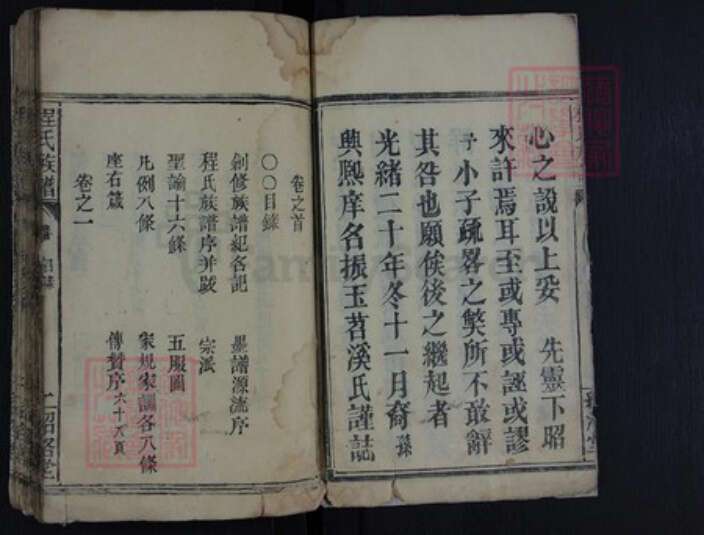 心之說以上妥　先靈下昭
來許焉耳至或專或誣或謬
予小子疏畧之獘所不敢辭
其咎也願俟後之繼起者
光緒二十年冬十一月裔孫
興熙庠名振玉苕溪氏謹誌
卷之首
〇〇目錄
創修族譜紀各記　墨譜源流序
程氏族譜序并跋　宗派
聖諭十六條　五服圖
凡例八條　家規家訓各八條
座右箴　傳贊序六十八頁
卷之一
程氏族譜